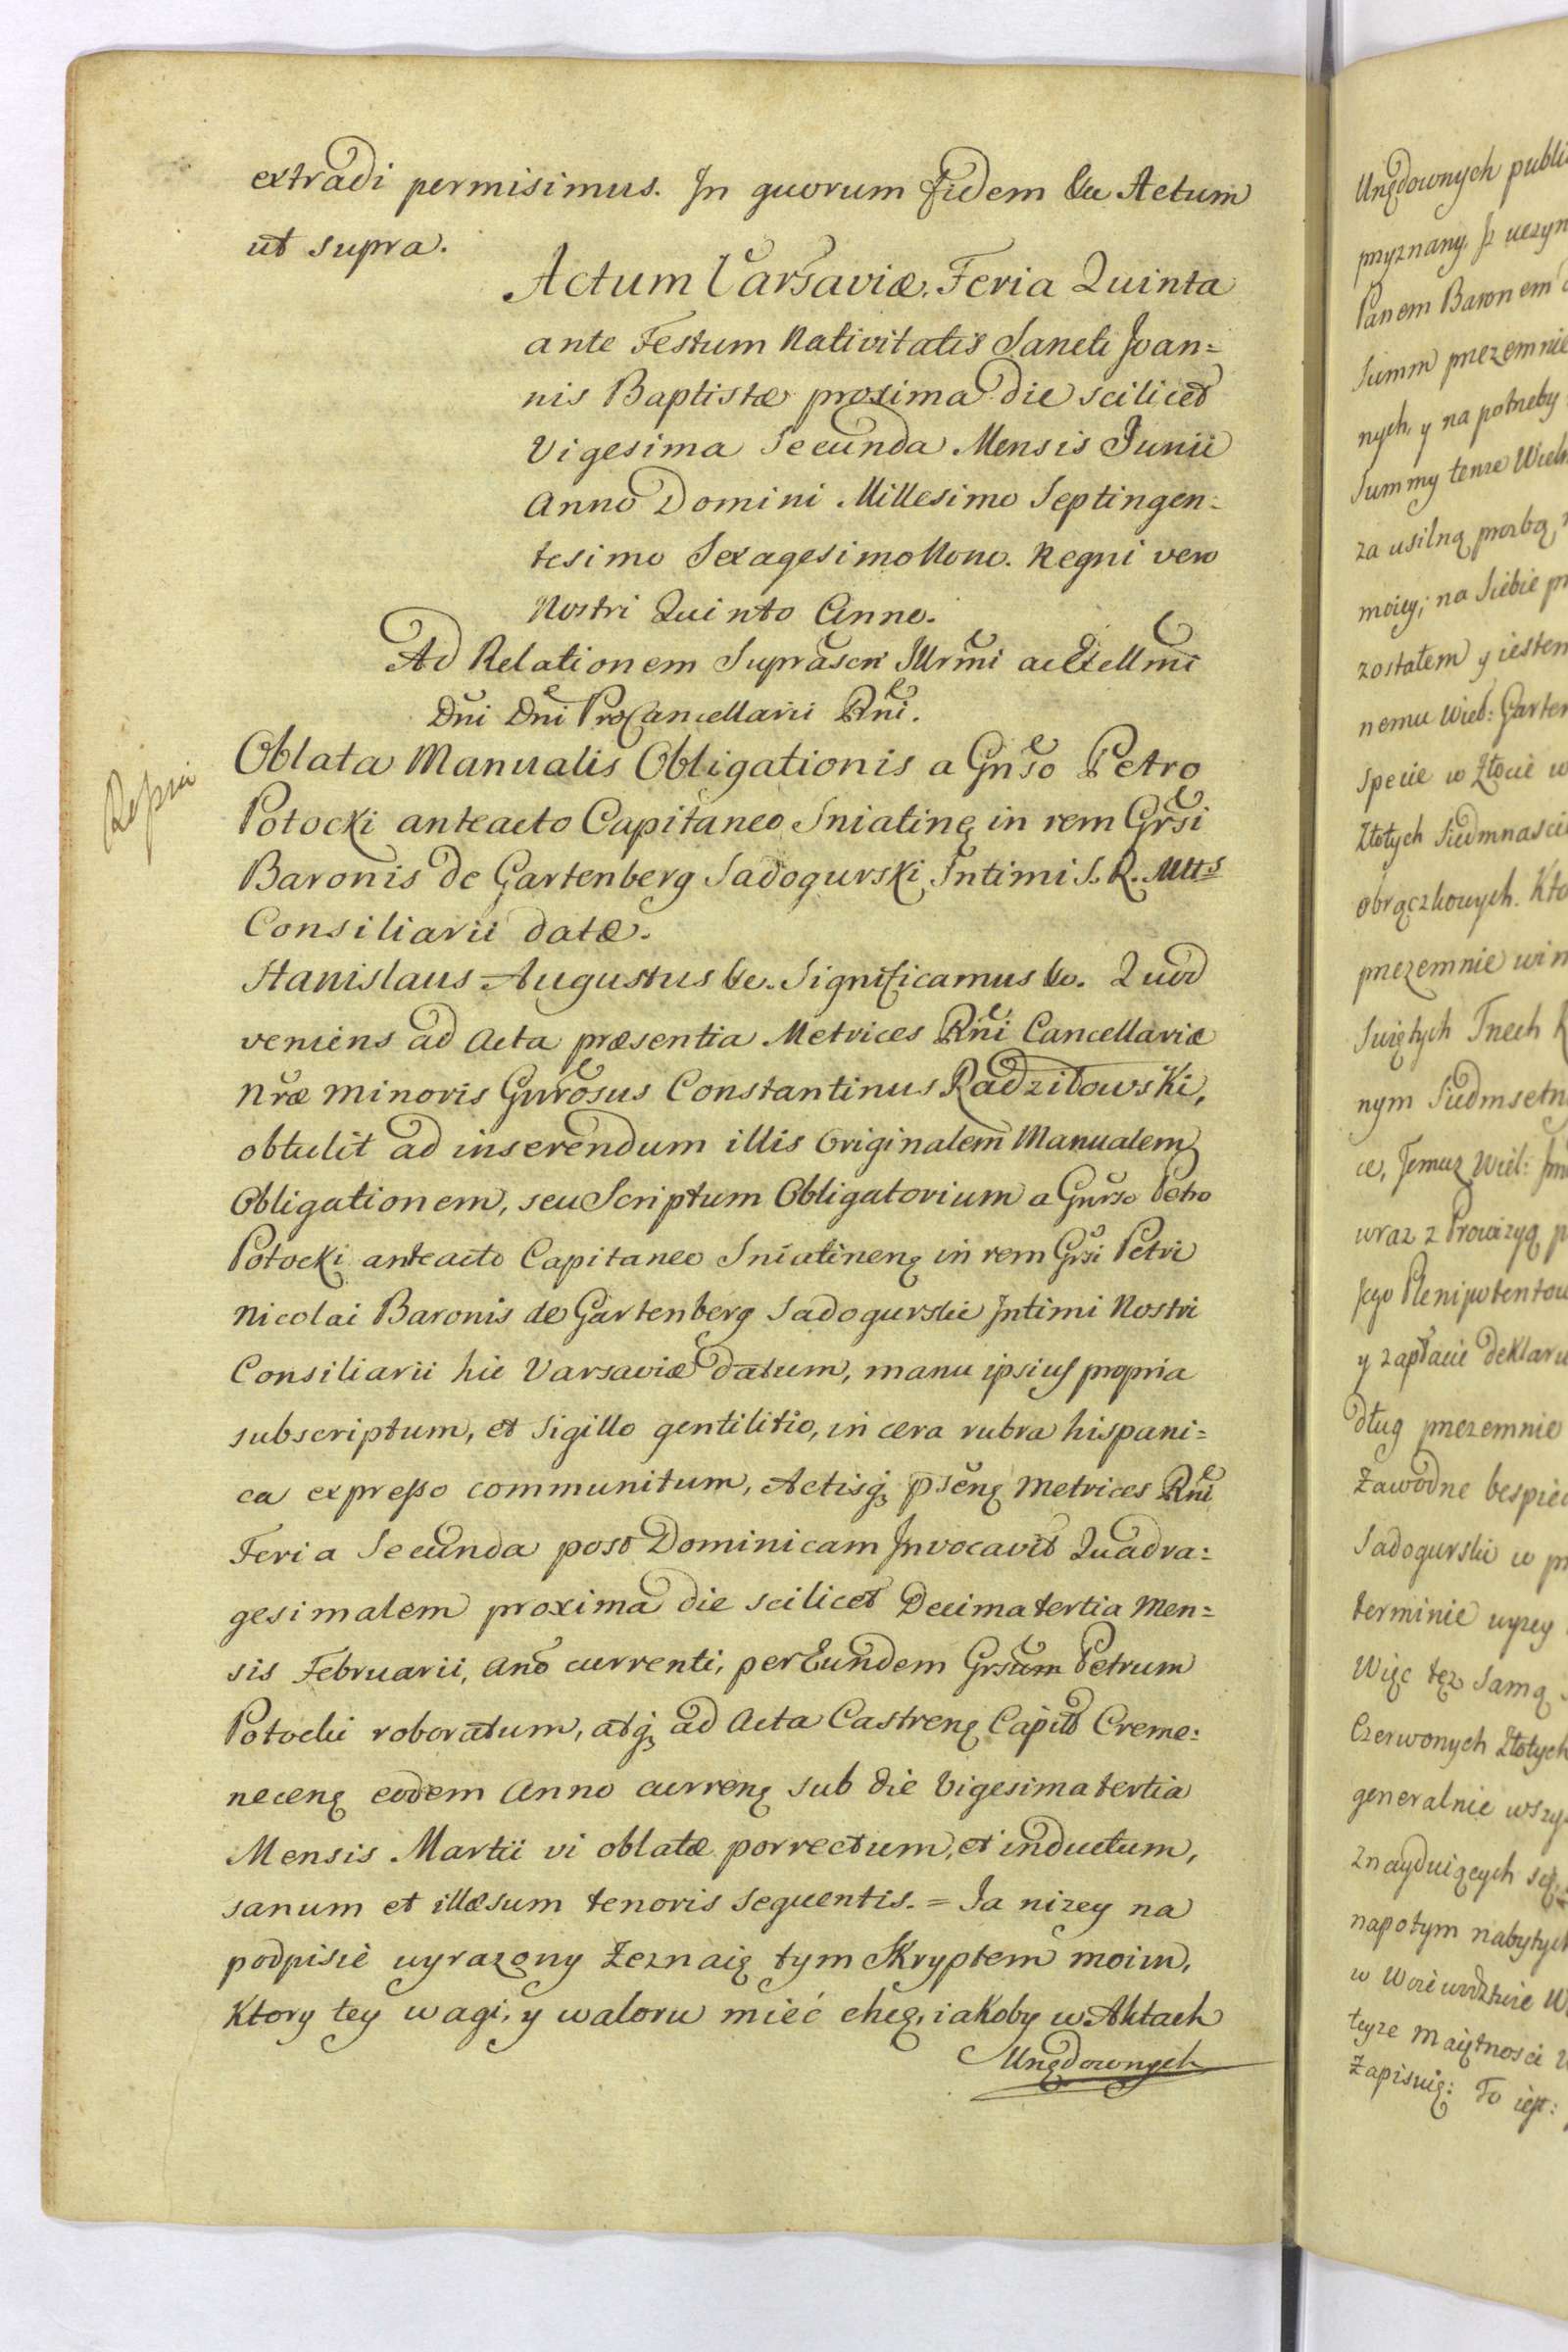 extradi permisimus. In quorum Fidem &c Actum
ut supra.
Actum Varsaviæ, Feria Quinta
ante Festum Nativitatis Sancti Joan=
nis Baptistæ proxima die scilicet
Vigesima Secunda Mensis Junii
Anno Domini Millesimo Septingen=
tesimo Sexagesimo Nono. Regni vero
Nostri Quinto Anno.
Ad Relationem Suprascri Illrmi ac Excellmi
Dni Dni ProCancellarii Rni.
Oblata Manualis Obligationis a Gnso Petro
Potocki anteacto Capitaneo Sniatinę in rem Grsi
Baronis de Gartenberg Sadogurski Intimi S. R. Mtts
Consiliarii datæ.
Stanislaus Augustus &c. Significamus &c. Quod
veniens ad Acta præsentia Metrices Rni Cancellariæ
Nræ minoris Gnrosus Constantinus Radziłowski,
obtulit ad inserendum illis Originalem Manualem
Obligationem, seu Scriptum Obligatorium a Gnrso Petro
Potocki anteacto Capitaneo Sniatinenę in rem Grsi Petri
Nicolai Baronis de Gartenberg Sadogurskie Intimi Nostri
Consiliarii hic Varsaviæ datum, manu ipsius propria
subscriptum, et Sigillo gentilitio, in cera rubra hispani=
ca expresso communitum, Actisq, psenę Metrices Rni
Feria Secunda post Dominicam Invocavit Quadra=
gesimalem proxima die scilicet Decima tertia Men=
sis Februarii, Ano currenti, per Eundem Grsum Petrum
Potocki roboratum, atq, ad Acta Castrenę Capitt Creme=
necenę eodem Anno currenę sub die Vigesima tertia
Mensis Martii vi oblatæ porrectum, et inductum,
sanum et illæsum tenoris sequentis. = Ja nizey na
podpisie wyrazony Zeznaię tym Skryptem moim,
Ktory tey wagi, y waloru mieć chcę, iakoby w Aktach
Urzędownych
Urzędownych publi
przyznany Jz uczyn
Panem Baronem
Summ przezemnie
nych, y na potrzeby
Summy tenze Wielm
za usilną prozbą
moiey, na Siebie pr
zostałem y iestem
nemu Wiel: Garten
Specie w Złocie w
Złotych Siedmnasci
obrączkowych. Kto
przezemnie win
Swiętych Trzech K
nym Siedmsetn
ce, Temuz Wiel: Jm
wraz z Prowizyą p
Jego Plenipotentow
y zapłacić deklaru
dług przezemnie
Zawodne bespiec
Sadogurskie w pr
terminie wyzey
Więc tęz Samą
Czerwonych Złotych
generalnie wszy
Znayduiących się
napotym nabytych
w Woiewodztwie W
teyze Maiętnosci
Zapisuię: To iest: